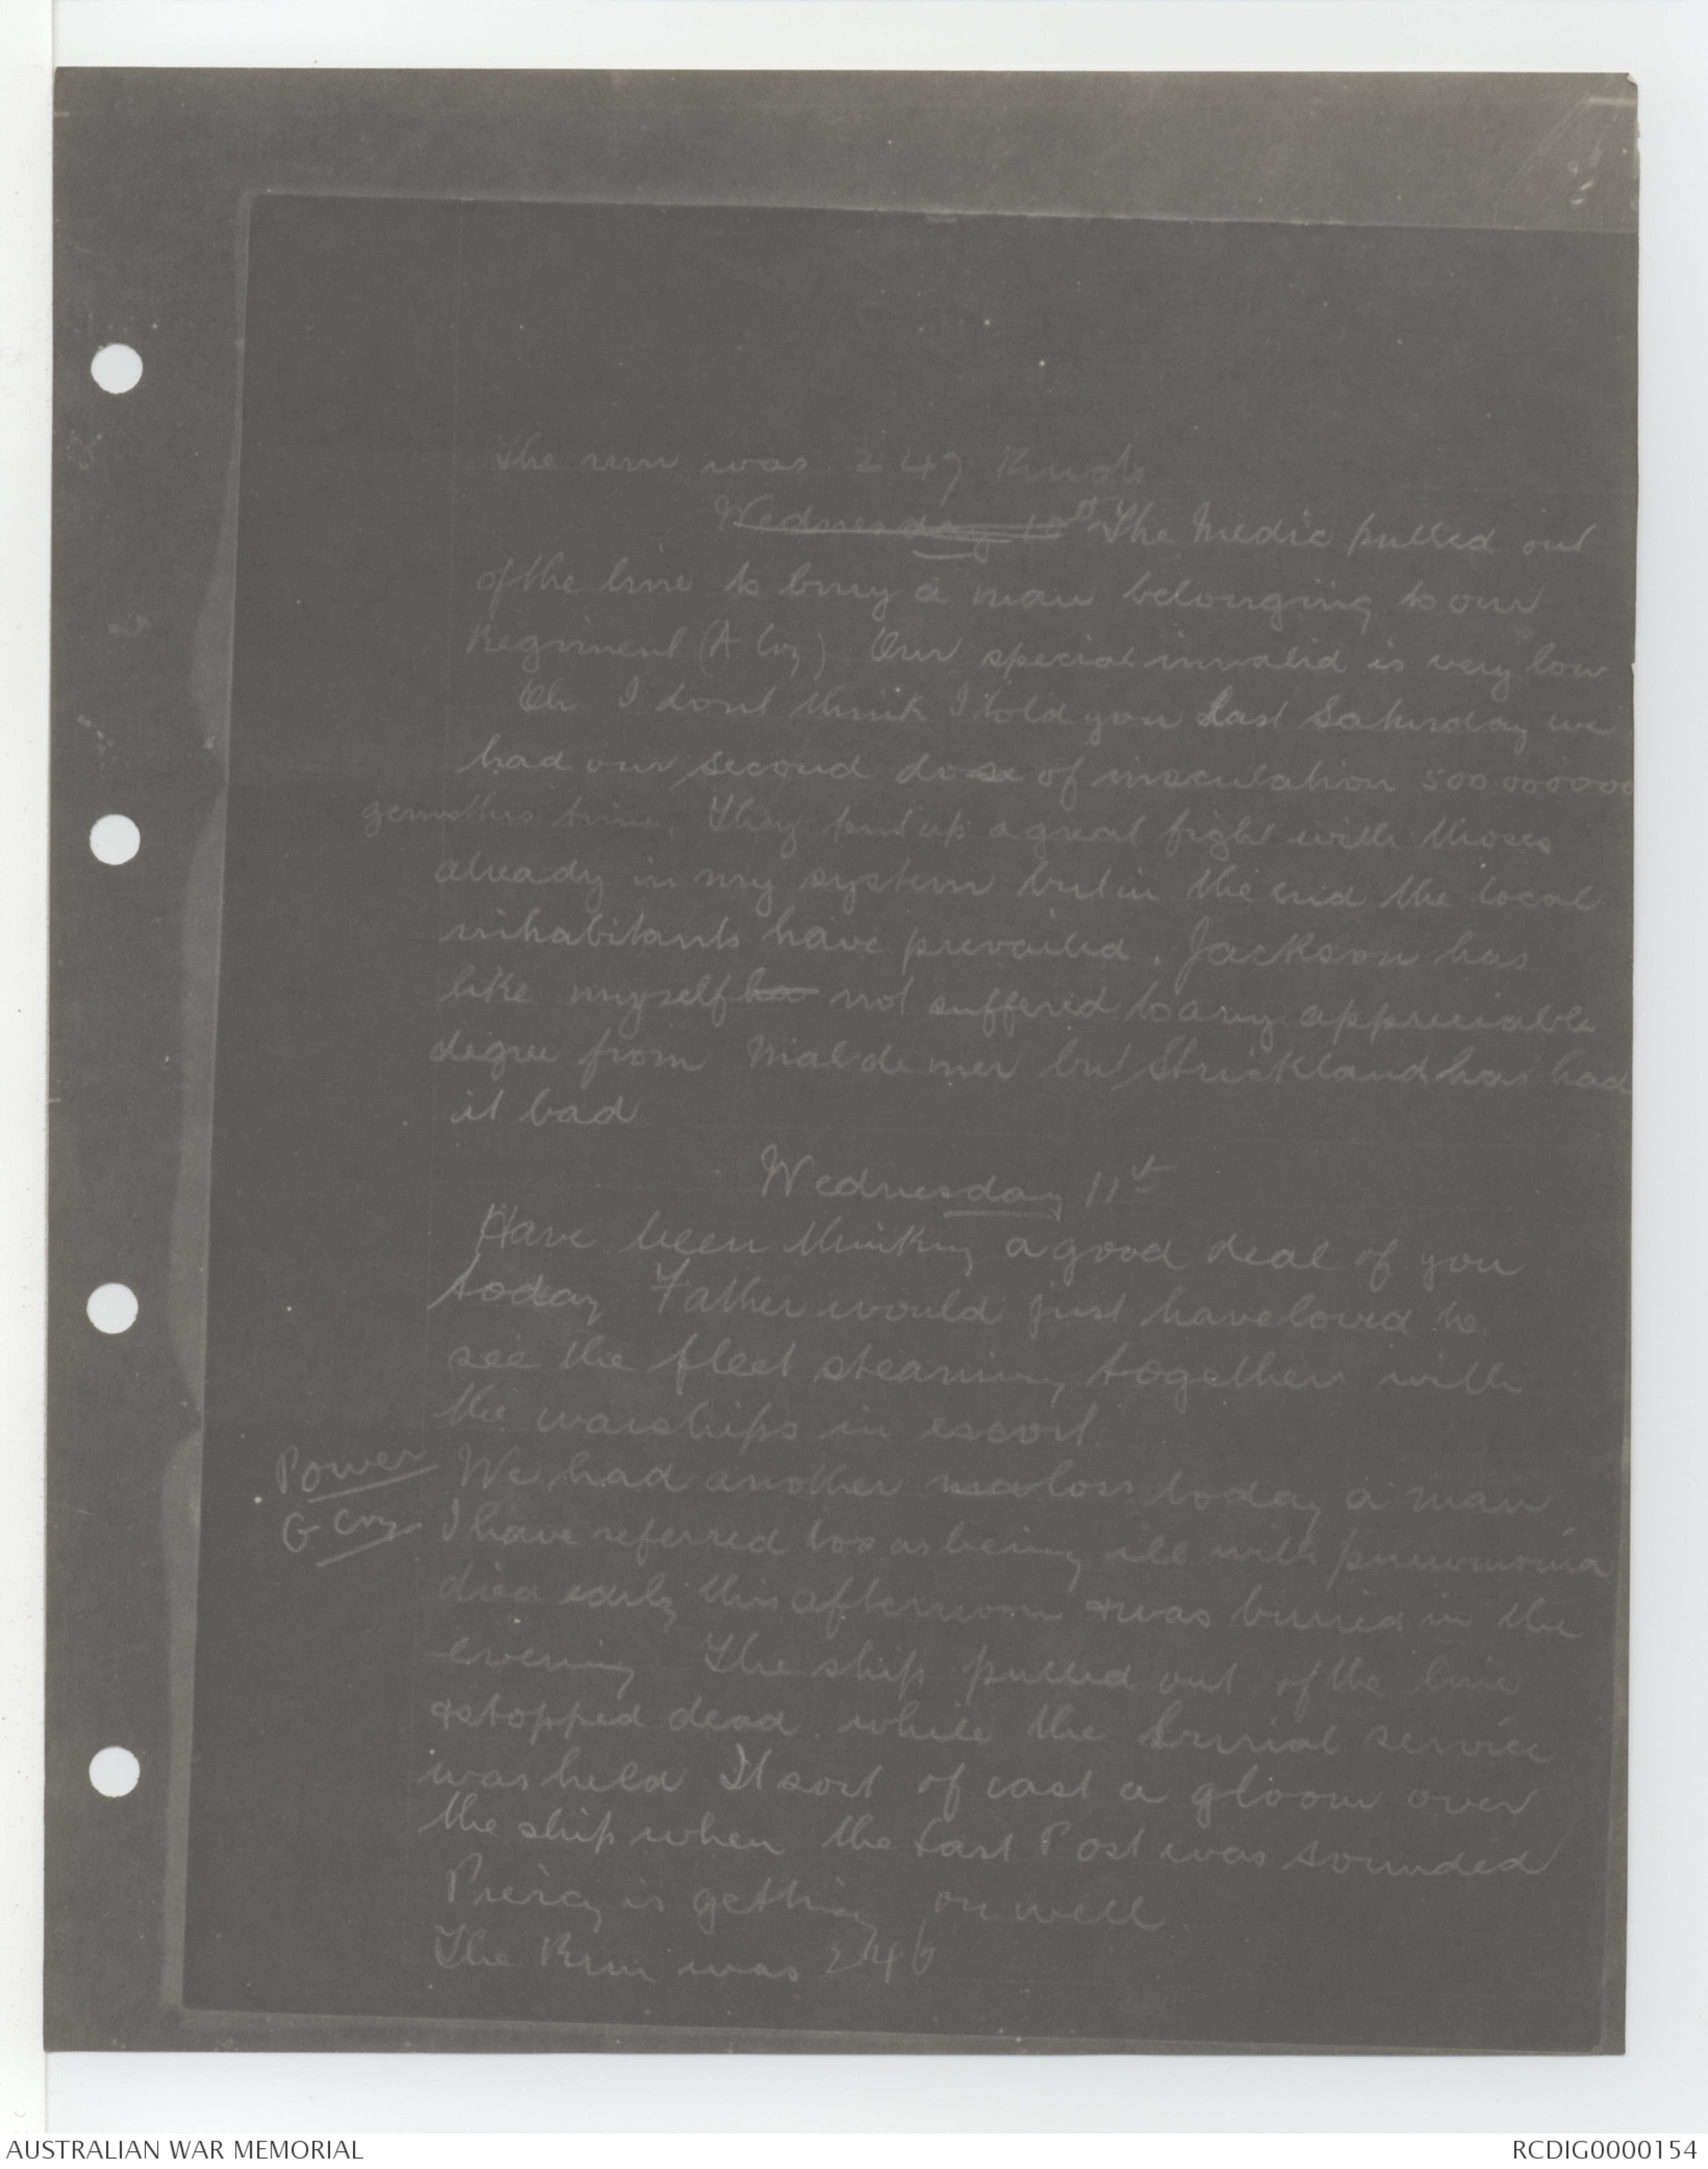 The run was 247 Knots
Wednesday 10th The Medic pulled out
of the line to bury a man belonging to our
Regiment (A Coy) Our special invalid is very low
Oh I dont think I told you Last Saturday we
had our second dose of inoculation 500.000000
germsthis time, They put up a great fight with thoses
already in my system but in the end the local
inhabitants have prevailed. Jackson has
like myself not suffered to any appreciable
degree from Mal de mer but Strickland has had
it bad
Wednesday 11th
Have been thinking a good deal of you
today Father would just have loved to
see the fleet steaming together with
the warships in escort.
Power We had another loss today a man
G Coy I have referred too as being ill with pneumonia
died early this afternoon & was buried in the
evening The ship pulled out of the line
& stopped dead while the burial service
was held It sort of cast a gloom over
the ship when the Last Post was sounded
Piercy is getting on well
The Run was 246
AUSTRALIAN WAR MEMORIAL
RCDIG0000154